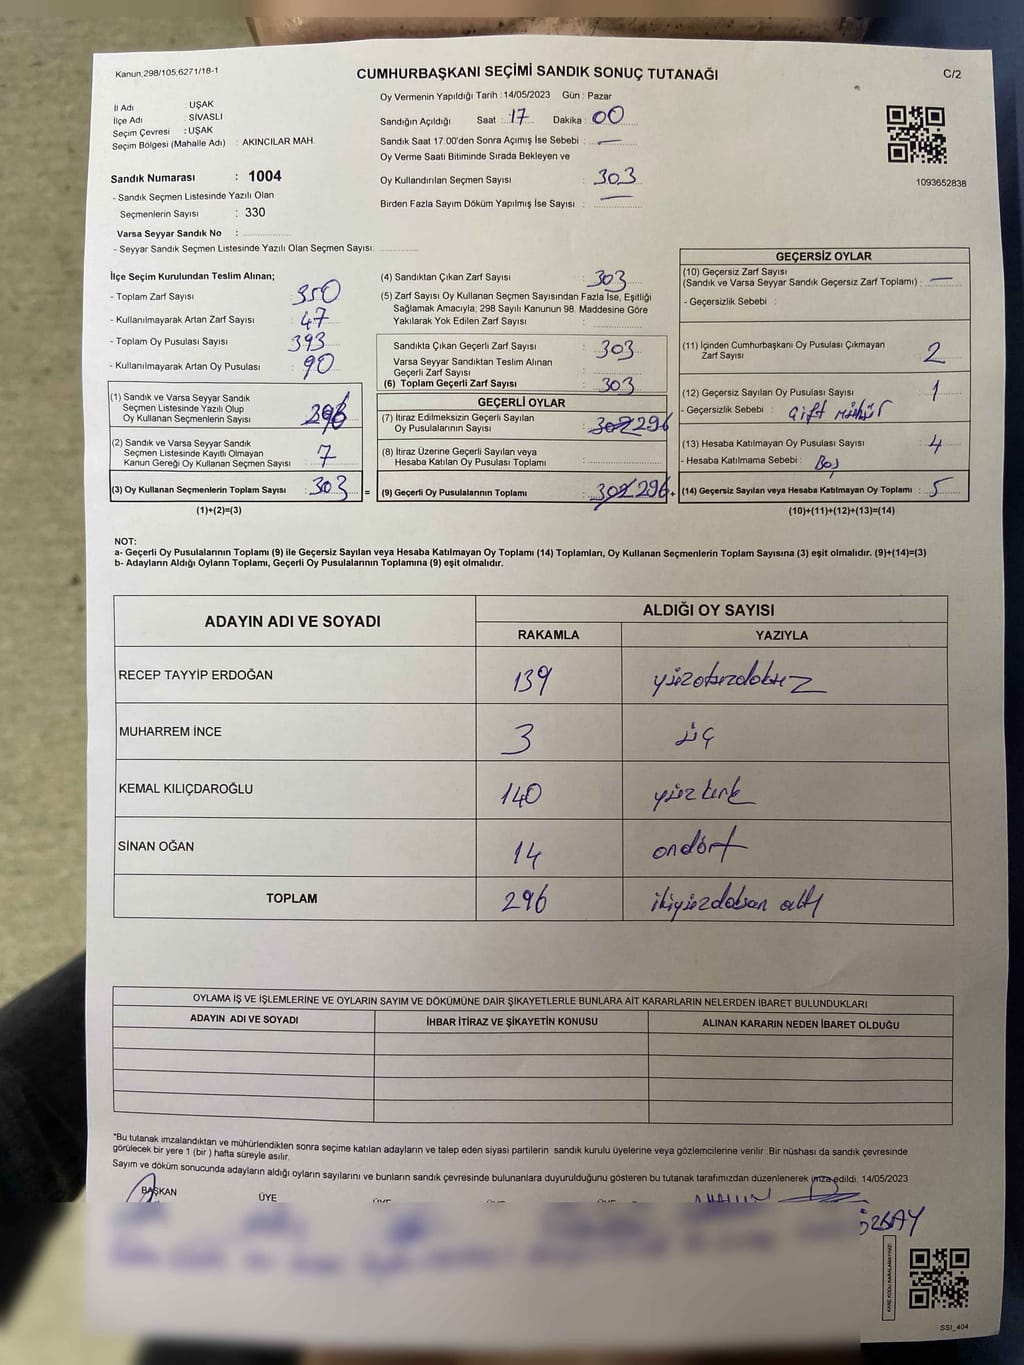 Kanun,298/105,6271/18-1
CUMHURBAŞKANI SEÇİMİ SANDIK SONUÇ TUTANAĞI
C/2
Oy Vermenin Yapıldığı Tarih : 14/05/2023 Gün : Pazar
İl Adı : UŞAK
İlçe Adı : SİVASLI
Seçim Çevresi : UŞAK
Seçim Bölgesi (Mahalle Adı) : AKINCILAR MAH.
Sandığın Açıldığı Saat : 17 Dakika : 00
Sandık Saat 17:00'den Sonra Açımış İse Sebebi : —
Oy Verme Saati Bitiminde Sırada Bekleyen ve
Oy Kullandırılan Seçmen Sayısı : 303
Birden Fazla Sayım Döküm Yapılmış İse Sayısı : —
1093652838
Sandık Numarası : 1004
- Sandık Seçmen Listesinde Yazılı Olan
Seçmenlerin Sayısı : 330
Varsa Seyyar Sandık No :
- Seyyar Sandık Seçmen Listesinde Yazılı Olan Seçmen Sayısı:
İlçe Seçim Kurulundan Teslim Alınan;
- Toplam Zarf Sayısı : 350
- Kullanılmayarak Artan Zarf Sayısı : 47
- Toplam Oy Pusulası Sayısı : 393
- Kullanılmayarak Artan Oy Pusulası : 90
(1) Sandık ve Varsa Seyyar Sandık
Seçmen Listesinde Yazılı Olup
Oy Kullanan Seçmenlerin Sayısı : 296
(2) Sandık ve Varsa Seyyar Sandık
Seçmen Listesinde Kayıtlı Olmayan
Kanun Gereği Oy Kullanan Seçmen Sayısı : 7
(3) Oy Kullanan Seçmenlerin Toplam Sayısı : 303 =
(1)+(2)=(3)
(4) Sandıktan Çıkan Zarf Sayısı : 303
(5) Zarf Sayısı Oy Kullanan Seçmen Sayısından Fazla İse, Eşitliği
Sağlamak Amacıyla, 298 Sayılı Kanunun 98. Maddesine Göre
Yakılarak Yok Edilen Zarf Sayısı :
Sandıkta Çıkan Geçerli Zarf Sayısı : 303
Varsa Seyyar Sandıktan Teslim Alınan
Geçerli Zarf Sayısı :
(6) Toplam Geçerli Zarf Sayısı : 303
GEÇERLİ OYLAR
(7) İtiraz Edilmeksizin Geçerli Sayılan
Oy Pusulalarının Sayısı : 302 296
(8) İtiraz Üzerine Geçerli Sayılan veya
Hesaba Katılan Oy Pusulası Toplamı :
(9) Geçerli Oy Pusulalarının Toplamı : 302 296 +
GEÇERSİZ OYLAR
(10) Geçersiz Zarf Sayısı
(Sandık ve Varsa Seyyar Sandık Geçersiz Zarf Toplamı) : —
- Geçersizlik Sebebi :
(11) İçinden Cumhurbaşkanı Oy Pusulası Çıkmayan
Zarf Sayısı : 2
(12) Geçersiz Sayılan Oy Pusulası Sayısı : 1
- Geçersizlik Sebebi : Çift mühür
(13) Hesaba Katılmayan Oy Pusulası Sayısı : 4
- Hesaba Katılmama Sebebi : Boş
(14) Geçersiz Sayılan veya Hesaba Katılmayan Oy Toplamı : 5
(10)+(11)+(12)+(13)=(14)
NOT:
a- Geçerli Oy Pusulalarının Toplamı (9) ile Geçersiz Sayılan veya Hesaba Katılmayan Oy Toplamı (14) Toplamları, Oy Kullanan Seçmenlerin Toplam Sayısına (3) eşit olmalıdır. (9)+(14)=(3)
b- Adayların Aldığı Oyların Toplamı, Geçerli Oy Pusulalarının Toplamına (9) eşit olmalıdır.
ADAYIN ADI VE SOYADI
ALDIĞI OY SAYISI
RAKAMLA YAZIYLA
RECEP TAYYİP ERDOĞAN 139 yüzotuzdokuz
MUHARREM İNCE 3 üç
KEMAL KILIÇDAROĞLU 140 yüzkırk
SİNAN OĞAN 14 ondört
TOPLAM 296 ikiyüzdoksan altı
OYLAMA İŞ VE İŞLEMLERİNE VE OYLARIN SAYIM VE DÖKÜMÜNE DAİR ŞİKAYETLERLE BUNLARA AİT KARARLARIN NELERDEN İBARET BULUNDUKLARI
ADAYIN ADI VE SOYADI İHBAR İTİRAZ VE ŞİKAYETİN KONUSU ALINAN KARARIN NEDEN İBARET OLDUĞU
*Bu tutanak imzalandıktan ve mühürlendikten sonra seçime katılan adayların ve talep eden siyasi partilerin sandık kurulu üyelerine veya gözlemcilerine verilir. Bir nüshası da sandık çevresinde
görülecek bir yere 1 (bir) hafta süreyle asılır.
Sayım ve döküm sonucunda adayların aldığı oyların sayılarını ve bunların sandık çevresinde bulunanlara duyurulduğunu gösteren bu tutanak tarafımızdan düzenlenerek imza edildi. 14/05/2023
BAŞKAN ÜYE
ÖZBAY
KARE KODU KARALAMAYINIZ!
SSI_404